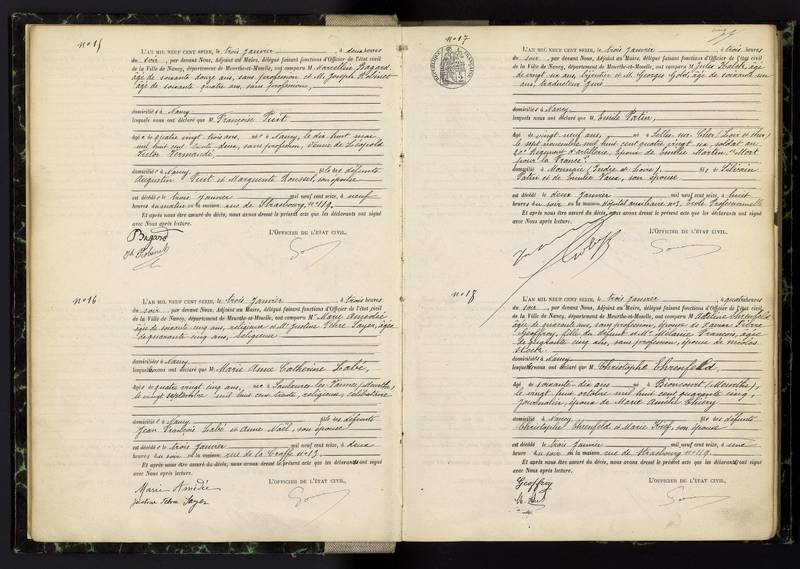 n°15
L'AN MIL NEUF CENT SEIZE, le trois janvier, à deux heures
du soir, par devant Nous, Adjoint au Maire, délégué faisant fonctions d'Officier de l'état civil
de la Ville de Nancy, département de Meurthe-et-Moselle, ont comparu M. Marcellin Bagard
âgé de soixante douze ans, sans profession et M. Joseph Robinet
âgé de soixante quatre ans, sans profession,
domiciliés à Nancy
lesquels nous ont déclaré que M. Françoise Petit
âgée de quatre vingt trois ans, née à Nancy, le dix huit mai
mil huit cent trente deux, sans profession, veuve de Léopold
Victor Fermande,
domiciliée à Nancy, fille des défunts
Augustin Petit et Marguerite Roussel, son épouse
est décédée le trois janvier mil neuf cent seize, à neuf
heures du matin en la maison rue de Strasbourg, n° 119.
Et après nous être assuré du décès, nous avons dressé le présent acte que les déclarants ont signé
avec Nous après lecture.
L'OFFICIER DE L'ÉTAT CIVIL,
Bagard
Robinet
n°16
L'AN MIL NEUF CENT SEIZE, le trois janvier, à trois heures
du soir, par devant Nous, Adjoint au Maire, délégué faisant fonctions d'Officier de l'état civil
de la Ville de Nancy, département de Meurthe-et-Moselle, ont comparu Mme Marie Amédée
âgée de soixante cinq ans, religieuse et Mme Justine Fèbre Sayer, âgée
de quarante cinq ans, religieuse
domiciliées à Nancy
lesquelles nous ont déclaré que M. Marie Anne Catherine Labé,
âgée de quatre vingt cinq ans, née à Saulxures-les-Vannes (Meurthe),
le vingt septembre mil huit cent trente, religieuse, célibataire
domiciliée à Nancy fille des défunts
Jean François Labé et Anne Noël, son épouse
est décédée le trois janvier mil neuf cent seize, à deux
heures du soir en la maison rue de la Craffe n° 13
Et après nous être assuré du décès, nous avons dressé le présent acte que les déclarants ont signé
avec Nous après lecture.
L'OFFICIER DE L'ÉTAT CIVIL,
Marie Amédée
Justine Fèbre Sayer
n°17
L'AN MIL NEUF CENT SEIZE, le trois janvier, à trois heures
du soir, par devant Nous, Adjoint au Maire, délégué faisant fonctions d'Officier de l'état civil
de la Ville de Nancy, département de Meurthe-et-Moselle, ont comparu M. Jules, âgé
de vingt six ans, et M. Georges, âgé de soixante un
ans,
domiciliés à Nancy
lesquels nous ont déclaré que M. Emile Patin,
âgé de vingt neuf ans, né à Selles-sur-Cher (Loir et Cher),
le sept novembre mil huit cent quatre vingt six, soldat au
20e Régiment d'artillerie, époux de Emélie Martin, "Mort
pour la France"
domicilié à Monnaie (Indre et Loire), fils de Silvain
Patin et de Emélie, son épouse
est décédé le deux janvier mil neuf cent seize, à huit
heures du soir en la maison Hôpital auxiliaire n° 3, Ecole Professionnelle
Et après nous être assuré du décès, nous avons dressé le présent acte que les déclarants ont signé
avec Nous après lecture.
L'OFFICIER DE L'ÉTAT CIVIL,
n°18
L'AN MIL NEUF CENT SEIZE, le trois janvier, à quatre heures
du soir, par devant Nous, Adjoint au Maire, délégué faisant fonctions d'Officier de l'état civil
de la Ville de Nancy, département de Meurthe-et-Moselle, ont comparu M. Adeline Ehrenfeld
âgée de quarante ans, sans profession, épouse de Xavier Pierre
Geoffroy, fille du défunt et Mme Mélanie François, âgée
de quarante cinq ans, sans profession, épouse de Nicolas
domiciliées à Nancy
lesquelles nous ont déclaré que M. Christophe Ehrenfeld,
âgé de soixante dix ans né à Bioncourt (Meurthe),
le vingt huit octobre mil huit cent quarante cinq,
journalier, époux de Marie Amélie Thiéry
domicilié à Nancy, fils des défunts
Christophe Ehrenfeld et Marie, son épouse
est décédé le trois janvier mil neuf cent seize, à une
heure du soir en la maison rue de Strasbourg n° 119.
Et après nous être assuré du décès, nous avons dressé le présent acte que les déclarants ont signé
avec Nous après lecture.
L'OFFICIER DE L'ÉTAT CIVIL,
Geoffroy